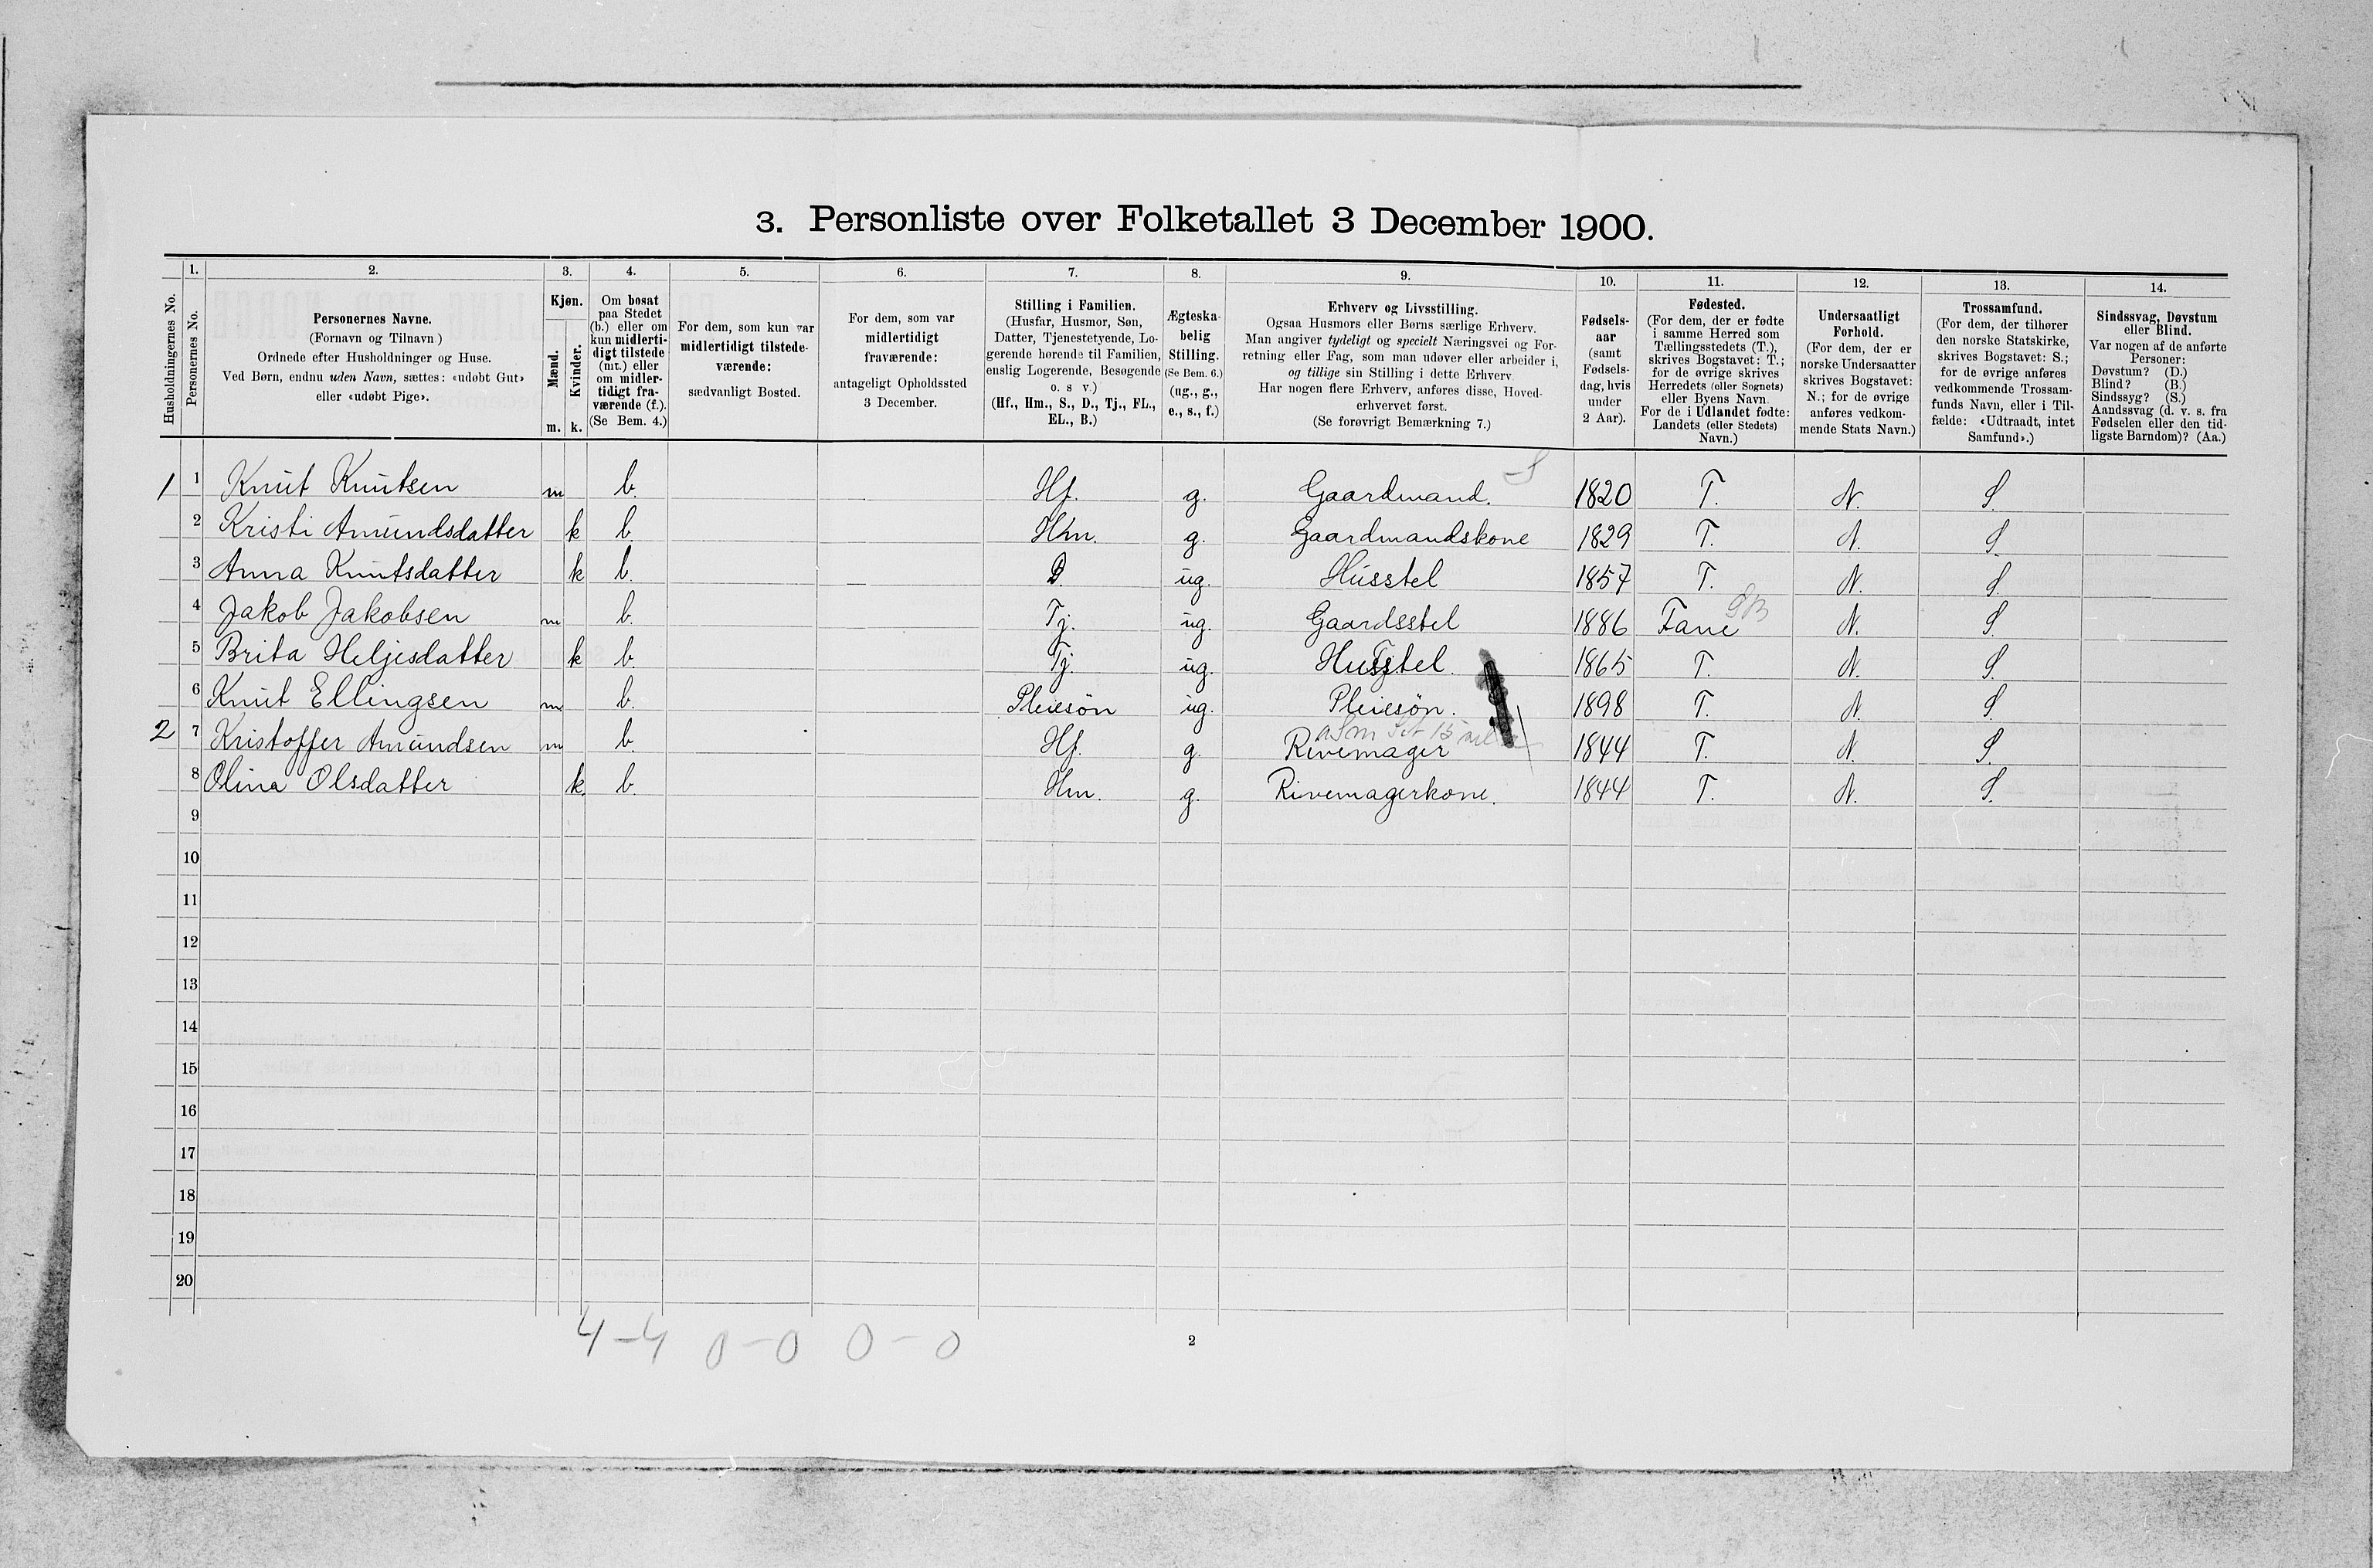 3. Personliste over Folketallet 3 December 1900.
Husholdningernes No.
1.
Personernes No.
2.
Personernes Navne.
(Fornavn og Tilnavn)
Ordnede efter Husholdninger og Huse.
Ved Børn, endnu uden Navn, sættes: «udøbt Gut»
eller «udøbt Pige».
3.
Kjøn.
Mænd.
Kvinder.
m.
k.
4.
Om bosat
paa Stedet
(b.) eller om
kun midlerti-
digt tilstede
(mt.) eller
om midler-
tidigt fra-
værende (f.).
(Se Bem. 4.)
5.
For dem, som kun var
midlertidigt tilstede-
værende:
sædvanligt Bosted.
6.
For dem, som var
midlertidigt
fraværende:
antageligt Opholdssted
3 December.
7.
Stilling i Familien.
(Husfar, Husmor, Søn,
Datter, Tjenestetyende, Lo-
gerende hørende til Familien,
enslig Logerende, Besøgende
o. s v.)
(Hf., Hm., S., D., Tj., FL.,
EL., B.)
8.
Ægteska-
belig
Stilling.
(Se Bem. 6.)
(ug., g.,
e., s., f.)
9.
Erhverv og Livsstilling.
Ogsaa Husmors eller Børns særlige Erhverv.
Man angiver tydeligt og specielt Næringsvei og For-
retning eller Fag, som man udøver eller arbeider i,
og tillige sin Stilling i dette Erhverv.
Har nogen flere Erhverv, anføres disse, Hoved-
erhvervet først.
(Se forøvrigt Bemærkning 7.)
10.
Fødsels-
aar
(samt
Fødsels-
dag, hvis
under
2 Aar).
11.
Fødested.
(For dem, der er fødte
i samme Herred som
Tællingsstedets (T.),
skrives Bogstavet: T.;
for de øvrige skrives
Herredets (eller Sognets)
eller Byens Navn.
For de i Udlandet fødte:
Landets (eller Stedets)
Navn.)
12.
Undersaatligt
Forhold.
(For dem, der er
norske Undersaatter
skrives Bogstavet:
N.; for de øvrige
anføres vedkom-
mende Stats Navn.)
13.
Trossamfund.
(For dem, der tilhører
den norske Statskirke,
skrives Bogstavet: S.;
for de øvrige anføres
vedkommende Trossam-
funds Navn, eller i Til-
fælde: «Udtraadt, intet
Samfund».)
14.
Sindssvag, Døvstum
eller Blind.
Var nogen af de anførte
Personer:
Døvstum? (D.)
Blind? (B.)
Sindssyg? (S.)
Aandssvag (d. v. s. fra
Fødselen eller den tid-
ligste Barndom)? (Aa.)
1 1 Knut Knutsen m b. Hf. g. Gaardmand. 1820 T. N. S.
2 Kristi Amundsdatter k b. Hm. g. Gaardmandskone 1829 T. N. S.
3 Anna Knutsdatter k b. D. ug. Husstel 1857 T. N. S.
4 Jakob Jakobsen m b. Tj. ug. Gaardsstel 1886 Fane N. S.
5 Brita Heljesdatter k b. Tj. ug. Husstel. 1865 T. N. S.
6 Knut Ellingsen m b. Pleiesøn ug. Pleiesøn. 1898 T. N. S.
2 7 Kristoffer Amundsen m b. Hf. g. Rivemager 1844 T. N. S.
8 Olina Olsdatter k. b. Hm. g. Rivemagerkone. 1844 T. N. S.
9
10
11
12
13
14
15
16
17
18
19
20
4-4 0-0 0-0
2